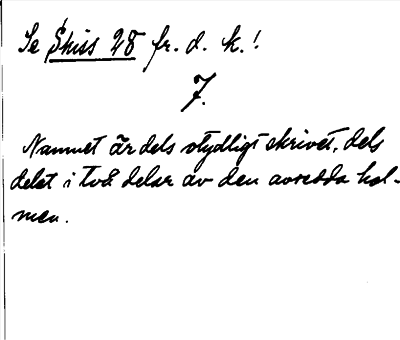 Se Skiss 28 fr. d. k.!
7.
Namnet är dels otydligt skrivet, dels
delat i två delar av den avsedda hol-
men.